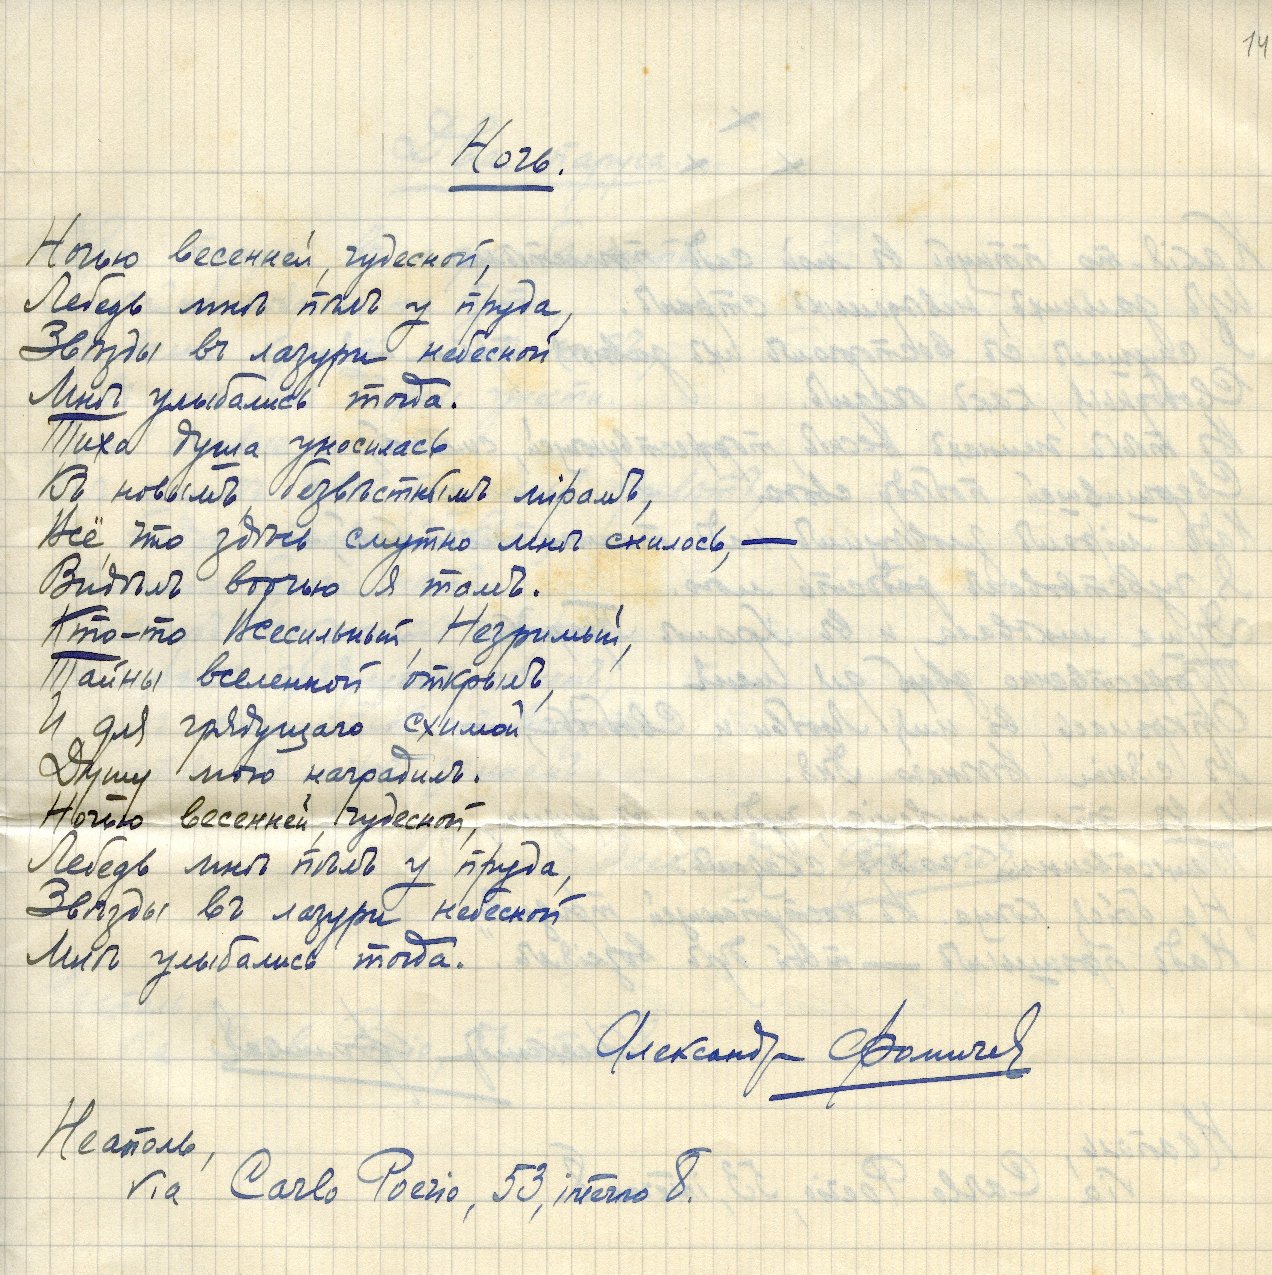 14
Ночь.
Ночью весенней, чудесной,
Лебедь мнѣ пѣлъ у пруда,
Звѣзды въ лазури небесной
Мнѣ улыбались тогда.
Тиха душа уносилась
Къ новымъ, безвѣстнымъ мірамъ,
Всё, что здѣсь смутно мнѣ снилось, —
Видѣлъ воочью я тамъ.
Кто-то Всесильный, Незримый,
Тайны вселенной открылъ,
И для грядущаго схимой
Душу мою наградилъ.
Ночью весенней, чудесной,
Лебедь мнѣ пѣлъ у пруда,
Звѣзды въ лазури небесной
Мнѣ улыбались тогда.
Александр Фомичев
Неаполь,
Via Carlo Poerio, 53, interno 8.